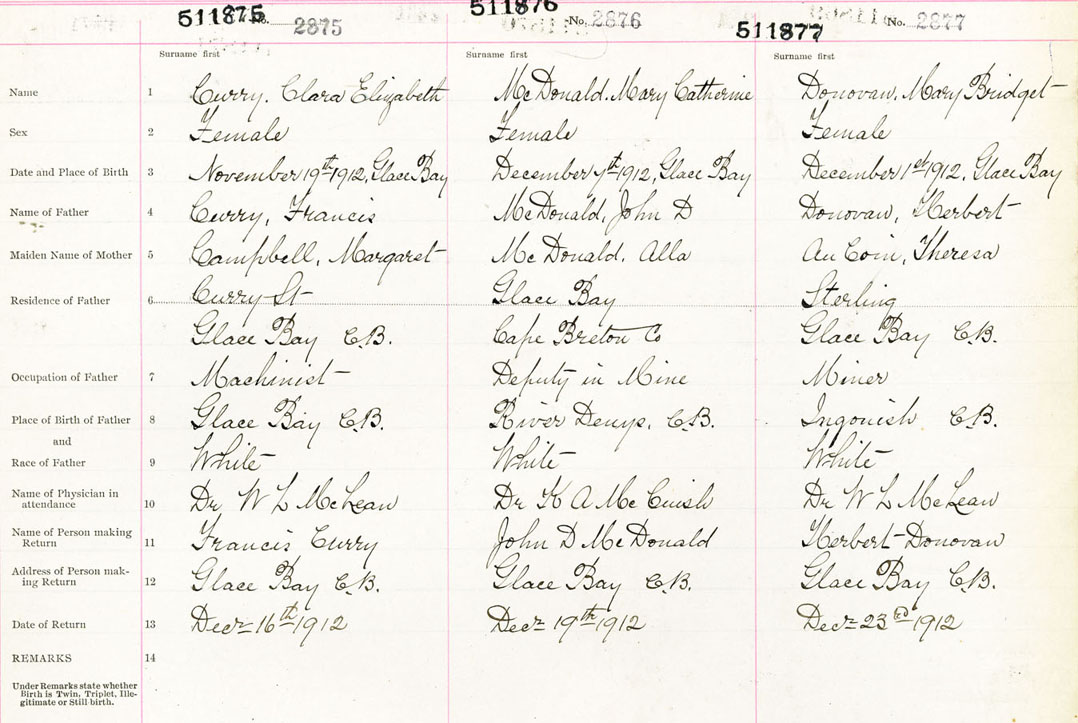 511875 No. 2875 511876 No. 2876 511877 No. 2877
Surname first Surname first Surname first
Name 1 Curry. Clara Elizabeth McDonald. Mary Catherine Donovan, Mary Bridget
Sex 2 Female Female Female
Date and Place of Birth 3 November 19th 1912, Glace Bay December 7th 1912, Glace Bay December 1st 1912, Glace Bay
Name of Father 4 Curry, Francis McDonald, John D Donovan, Herbert
Maiden Name of Mother 5 Campbell, Margaret McDonald, Alla Au Coin, Theresa
Residence of Father 6 Curry St Glace Bay Sterling
Glace Bay C.B. Cape Breton Co Glace Bay C.B.
Occupation of Father 7 Machinist Deputy in Mine Miner
Place of Birth of Father 8 Glace Bay C.B. River Denys, C.B. Ingonish C.B.
and
Race of Father 9 White White White
Name of Physician in
attendance 10 Dr W L McLean Dr K A McCuish Dr W L McLean
Name of Person making
Return 11 Francis Curry John D McDonald Herbert Donovan
Address of Person mak-
ing Return 12 Glace Bay C.B. Glace Bay C.B. Glace Bay C.B.
Date of Return 13 Decr 16th 1912 Decr 19th 1912 Decr 23rd 1912
REMARKS 14
Under Remarks state whether
Birth is Twin, Triplet, Ille-
gitimate or Still birth.